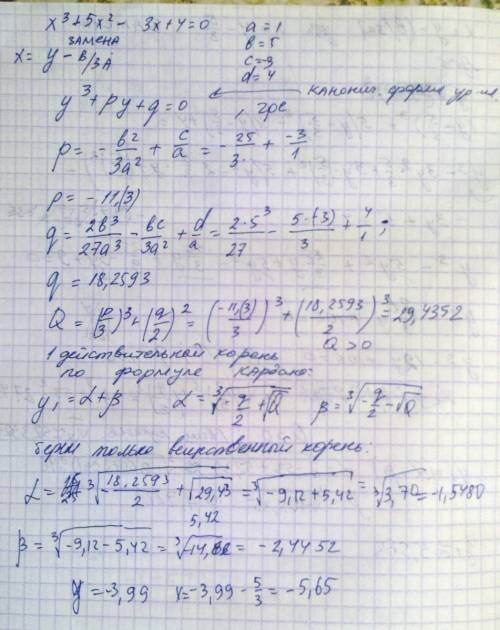 x³ + 5x² - 3x + 4 = 0
a = 1
ЗАМЕНА
в = 5
x = y - в/3А
c = -3
d = 4
y³ + py + q = 0
канонич. форма ур-ия
, где
p = - в²/3a² + c/a = - 25/3 + -3/1
p = - 11,(3)
q = 2в³/27a³ - вc/3a² + d/a = 2·5³/27 - 5·(-3)/3 + 4/1 ;
q = 18,2593
Q = (p/3)³ + (q/2)² = (-11,(3)/3)³ + (18,2593/2)³ = 29,4352
Q > 0
1 действительный корень
по формуле Кардано:
y₁ = α + β α = ∛(-q/2 + √Q) β = ∛(-q/2 - √Q)
берем только вещественный корень:
α = ∛(-18,2593/2 + √29,43) = ∛(-9,12 + 5,42) = ∛3,70 = -1,5480
5,42
β = ∛(-9,12 - 5,42) = ∛(-14,62) = -2,4452
y = -3,99 x = -3,99 - 5/3 = -5,65